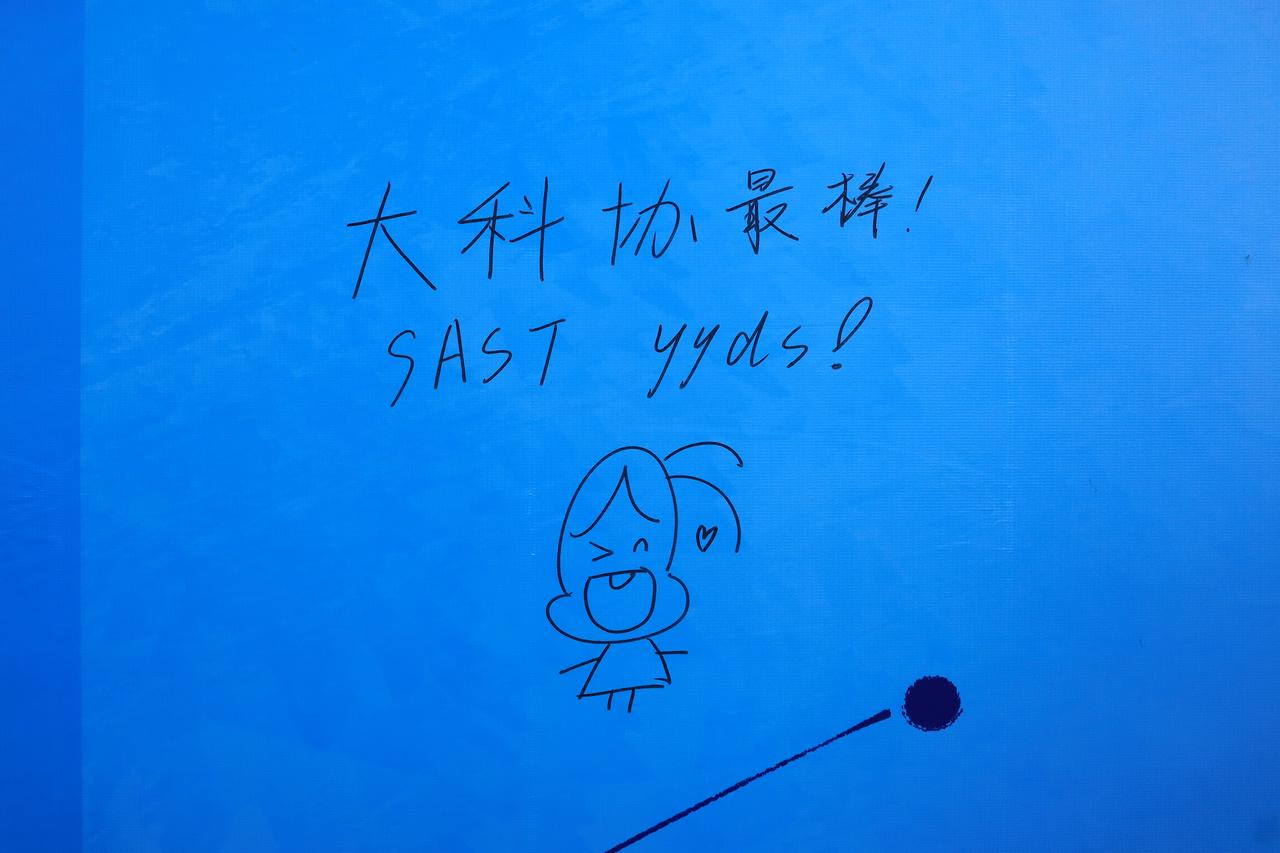 大科协最棒!
SAST yyds!